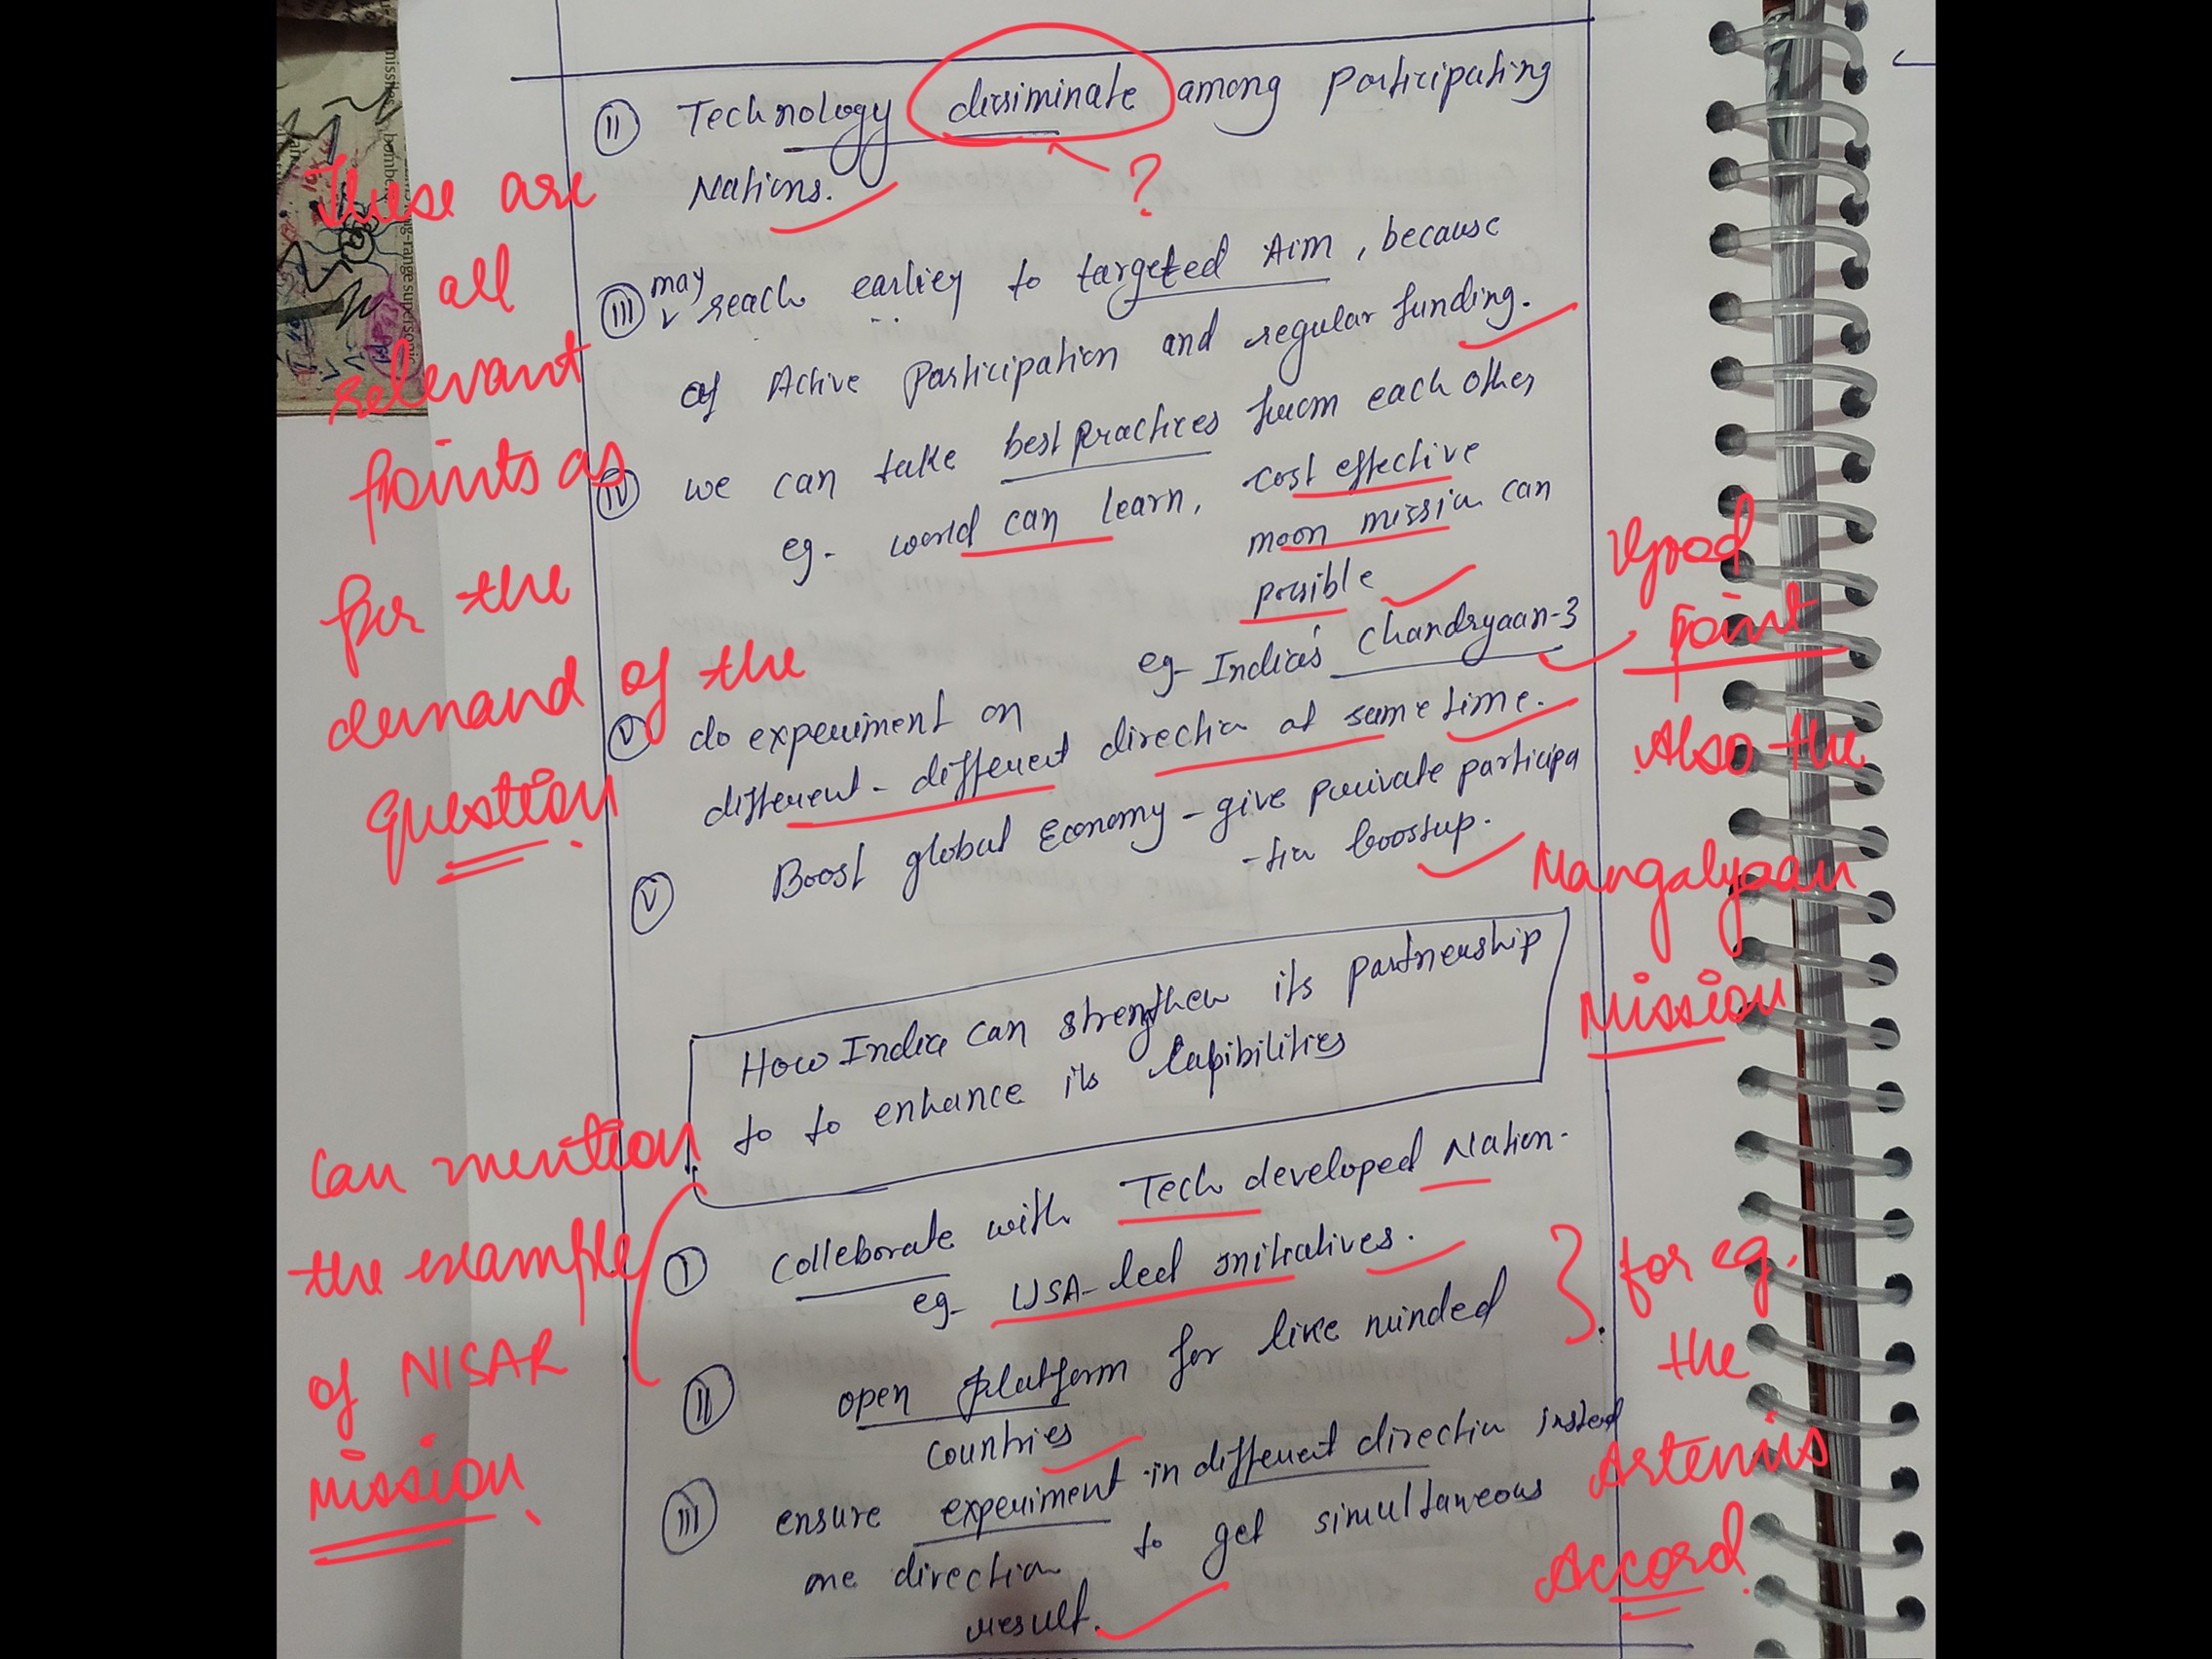 (II) Technology dissiminate among participating
Nations.
?
These are
all
relevant
points as
for the
demand of the
question.
(III) may reach earliey to targeted Aim, because
of Active Participation and regular funding.
(IV) we can take best practices from each other
eg- world can learn, cost effective
moon mission can
possible
eg- India's Chandryaan-3
Good
point
Also the
Mangalyaan
Mission
(V) do experiment on
different-different direction at same time.
(V) Boost global Economy - give private participa
-tion boostup.
How India can strengthen its partnership
to to enhance its Capibilities
Can mention
the example
of NISAR
Mission.
(I) Colleborate with Tech developed Nation.
eg- USA-led initiatives.
(II) open platform for like minded
countries
for eg.
the
Artemis
Accord.
(III) ensure experiment in different direction insted
one direction to get simultaneous
result.